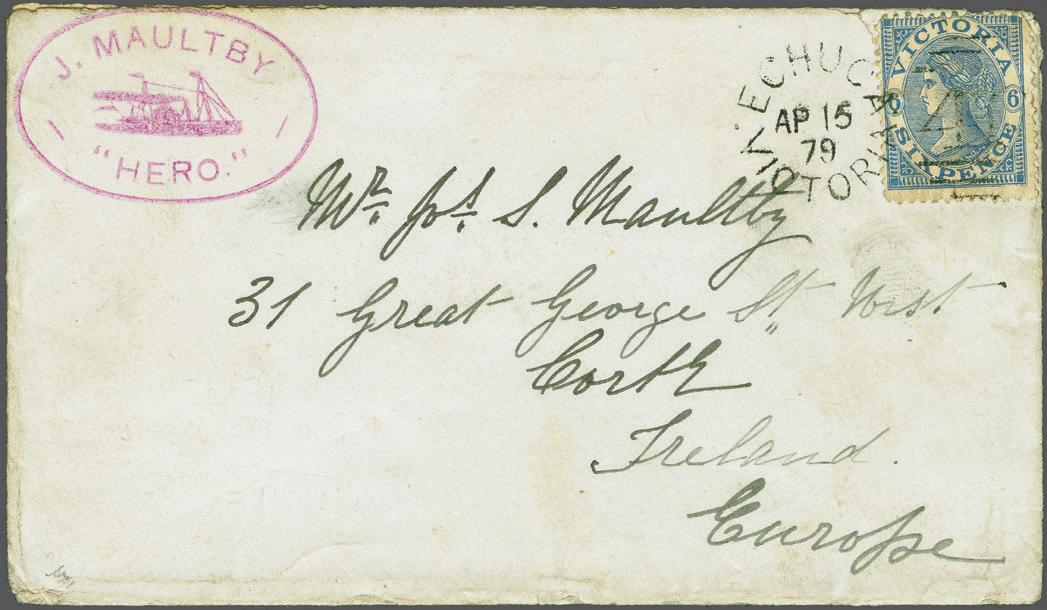 J. MAULTBY
"HERO."
ECHUCA
AP 15
79
VICTORIA
VICTORIA
6 6
SIX PENCE
Mr Jos S. Maultby
31 Great George St West
Cork
Ireland.
Europe